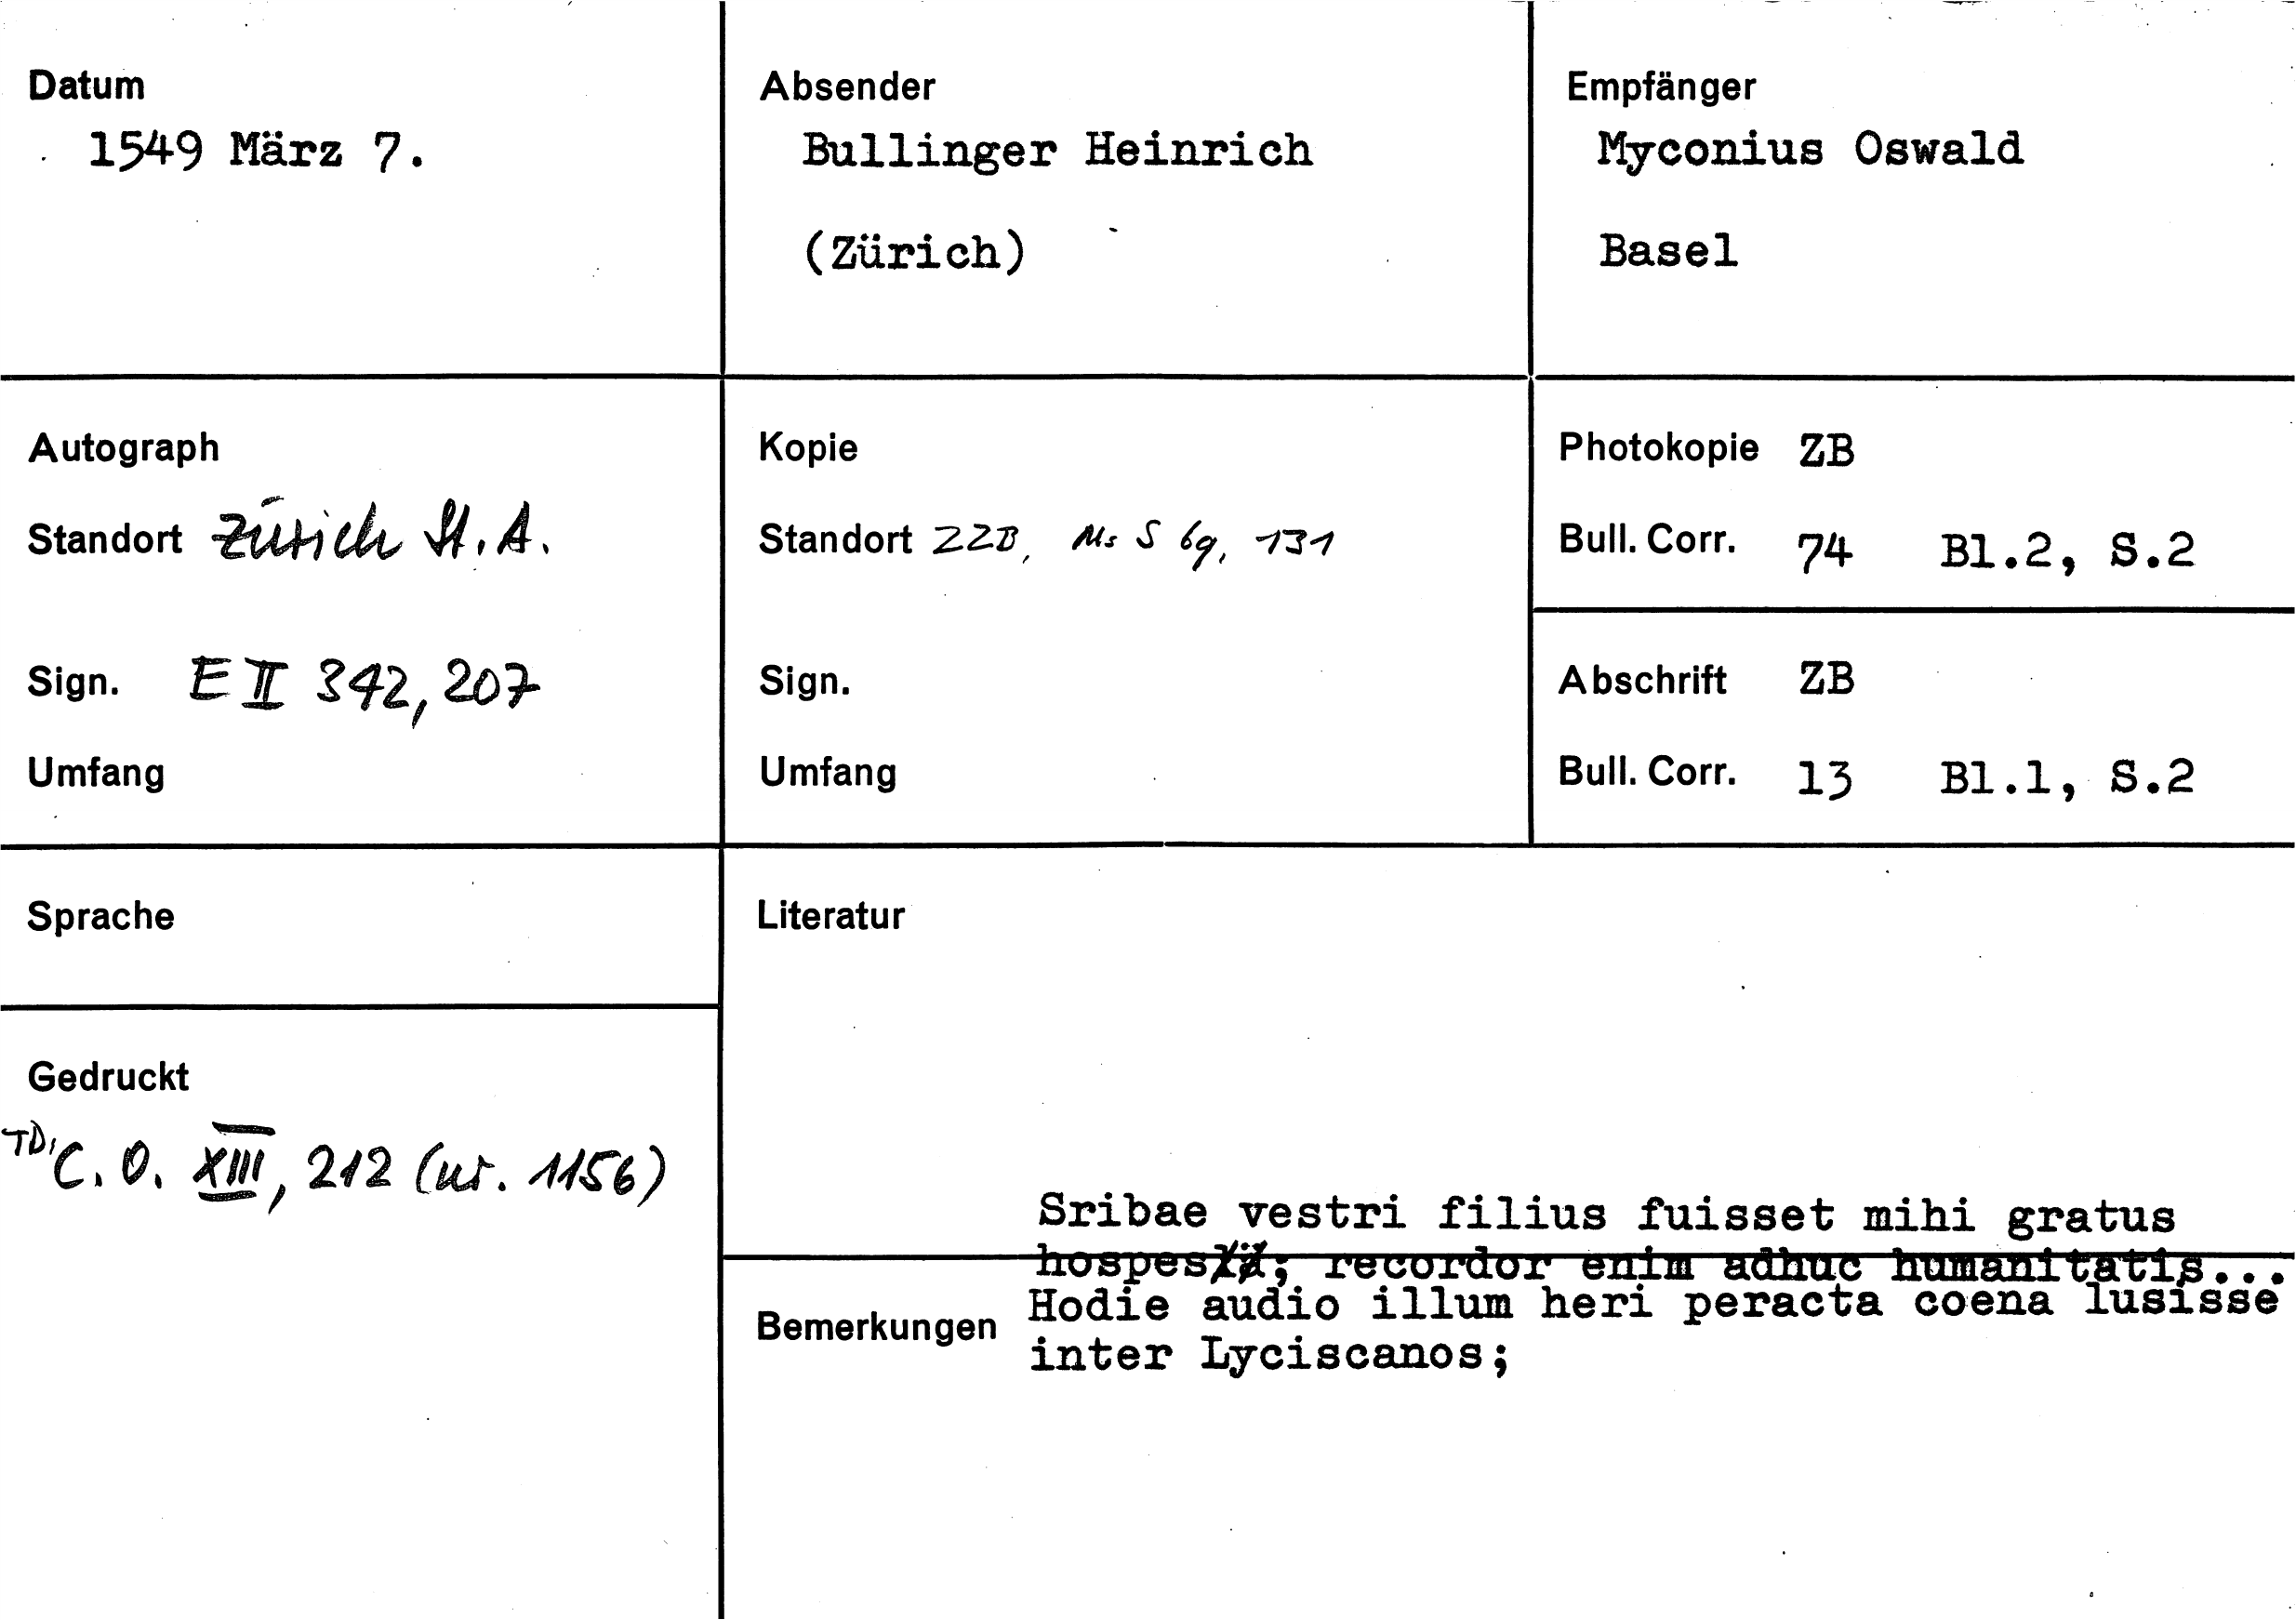 Datum
1549 März 7.
Absender
Bullinger Heinrich
(Zürich)
Empfänger
Myconius Oswald
Basel
Autograph
Standort Zürich St. A.
Sign. E II 342, 207
Umfang
Kopie
Standort ZZB, Ms S 69, 131
Sign.
Umfang
Photokopie ZB
Bull. Corr. 74 Bl.2, S.2
Abschrift ZB
Bull. Corr. 13 Bl.1, S.2
Sprache
Gedruckt
TD, C. O. XIII, 212 (nr. 1156)
Literatur
Sribae vestri filius fuisset mihi gratus
hospes; recordor enim adhuc humanitatis...
Bemerkungen
Hodie audio illum heri peracta coena lusisse
inter Lyciscanos;